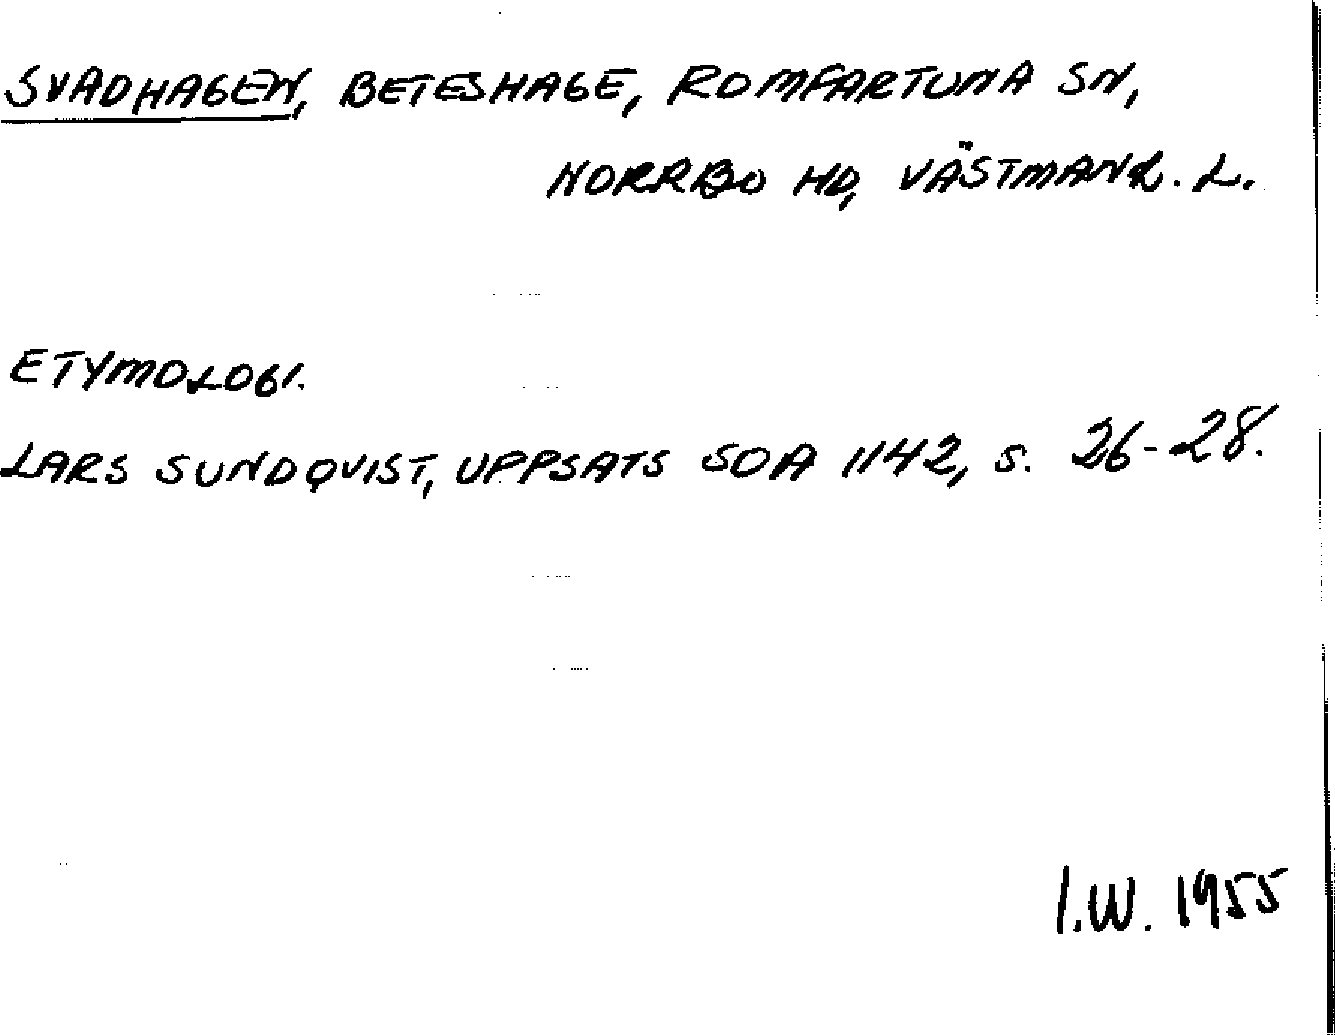 SVADHAGEN, BETESHAGE, ROMFARTUNA SN,
NORRBO HD, VÄSTMANL. L.
ETYMOLOGI.
LARS SUNDQVIST, UPPSATS SOA 1142, S. 26-28.
I.W. 1955